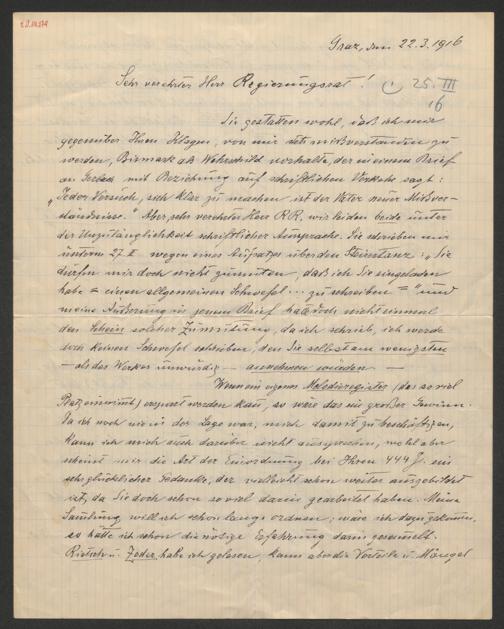 Graz, den 22.3.1916
Sehr verehrter Herr Regierungsrat!
25. III
16
Sie gestatten wohl, daß ich mir
gegenüber Ihren Klagen, von mir stets mißverstanden zu
werden, Bismark als Wehrschild vorhalte, der in einem Brief
an Gerlach mit Beziehung auf schriftlichen Verkehr sagt:
"Jeder Versuch, sich klar zu machen ist der Vater neuer Mißver-
ständnisse." Aber, sehr verehrter Herr R.R. wir leiden beide unter
der Unzulänglichkeit schriftlicher Aussprache. Sie schrieben mir
unterm 27. II wegen eines Aufsatzes über den Steirtanz "Sie
dürfen mir doch nicht zumuten, daß ich Sie eingeladen
habe = einen allgemeinen Schwefel ... zu schreiben =" und
meine Äußerung in jenem Brief hatte doch nicht einmal
den Schein solcher Zumutung, da ich schrieb, ich werde
doch keinen Schwefel schreiben, den Sie selbst am wenigsten
— als des Werkes unwürdig — annehmen würden —
Wenn ein eigenes Melodieregister (das so viel
Platz einnimmt) erspart werden kann, so wäre das ein großer Gewinn.
Da ich noch nie in der Lage war, mich damit zu beschäftigen,
kann ich mich auch darüber nicht aussprechen, wohl aber
scheint mir die Art der Einordnung bei Ihren 444 J. ein
sehr glücklicher Gedanke, der vielleicht schon weiter ausgebildet
ist, da Sie doch schon so viel darin gearbeitet haben. Meine
Samlung will ich schon lange ordnen; wäre ich dazu gekommen,
so hätte ich schon die nötige Erfahrung darin gesammelt.
Rietsch u. Zoder habe ich gelesen, kann aber die Vorteile u. Mängel